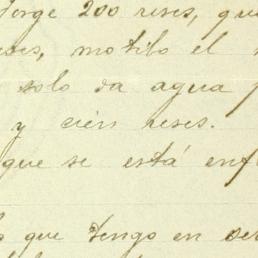 Jorge 200 reses, que
reses, motibo el
solo da agua p
y cien reses.
que se está enf
que tengo en ser